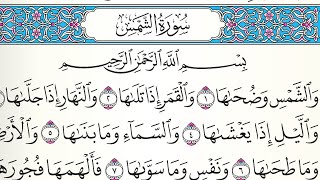 سُورَةُ الشَّمْسِ
بِسْمِ اللَّهِ الرَّحْمَٰنِ الرَّحِيمِ
وَالشَّمْسِ وَضُحَاهَا ١ وَالْقَمَرِ إِذَا تَلَاهَا ٢ وَالنَّهَارِ إِذَا جَلَّاهَا
وَاللَّيْلِ إِذَا يَغْشَاهَا ٤ وَالسَّمَاءِ وَمَا بَنَاهَا ٥ وَالْأَرْضِ
وَمَا طَحَاهَا ٦ وَنَفْسٍ وَمَا سَوَّاهَا ٧ فَأَلْهَمَهَا فُجُورَهَا